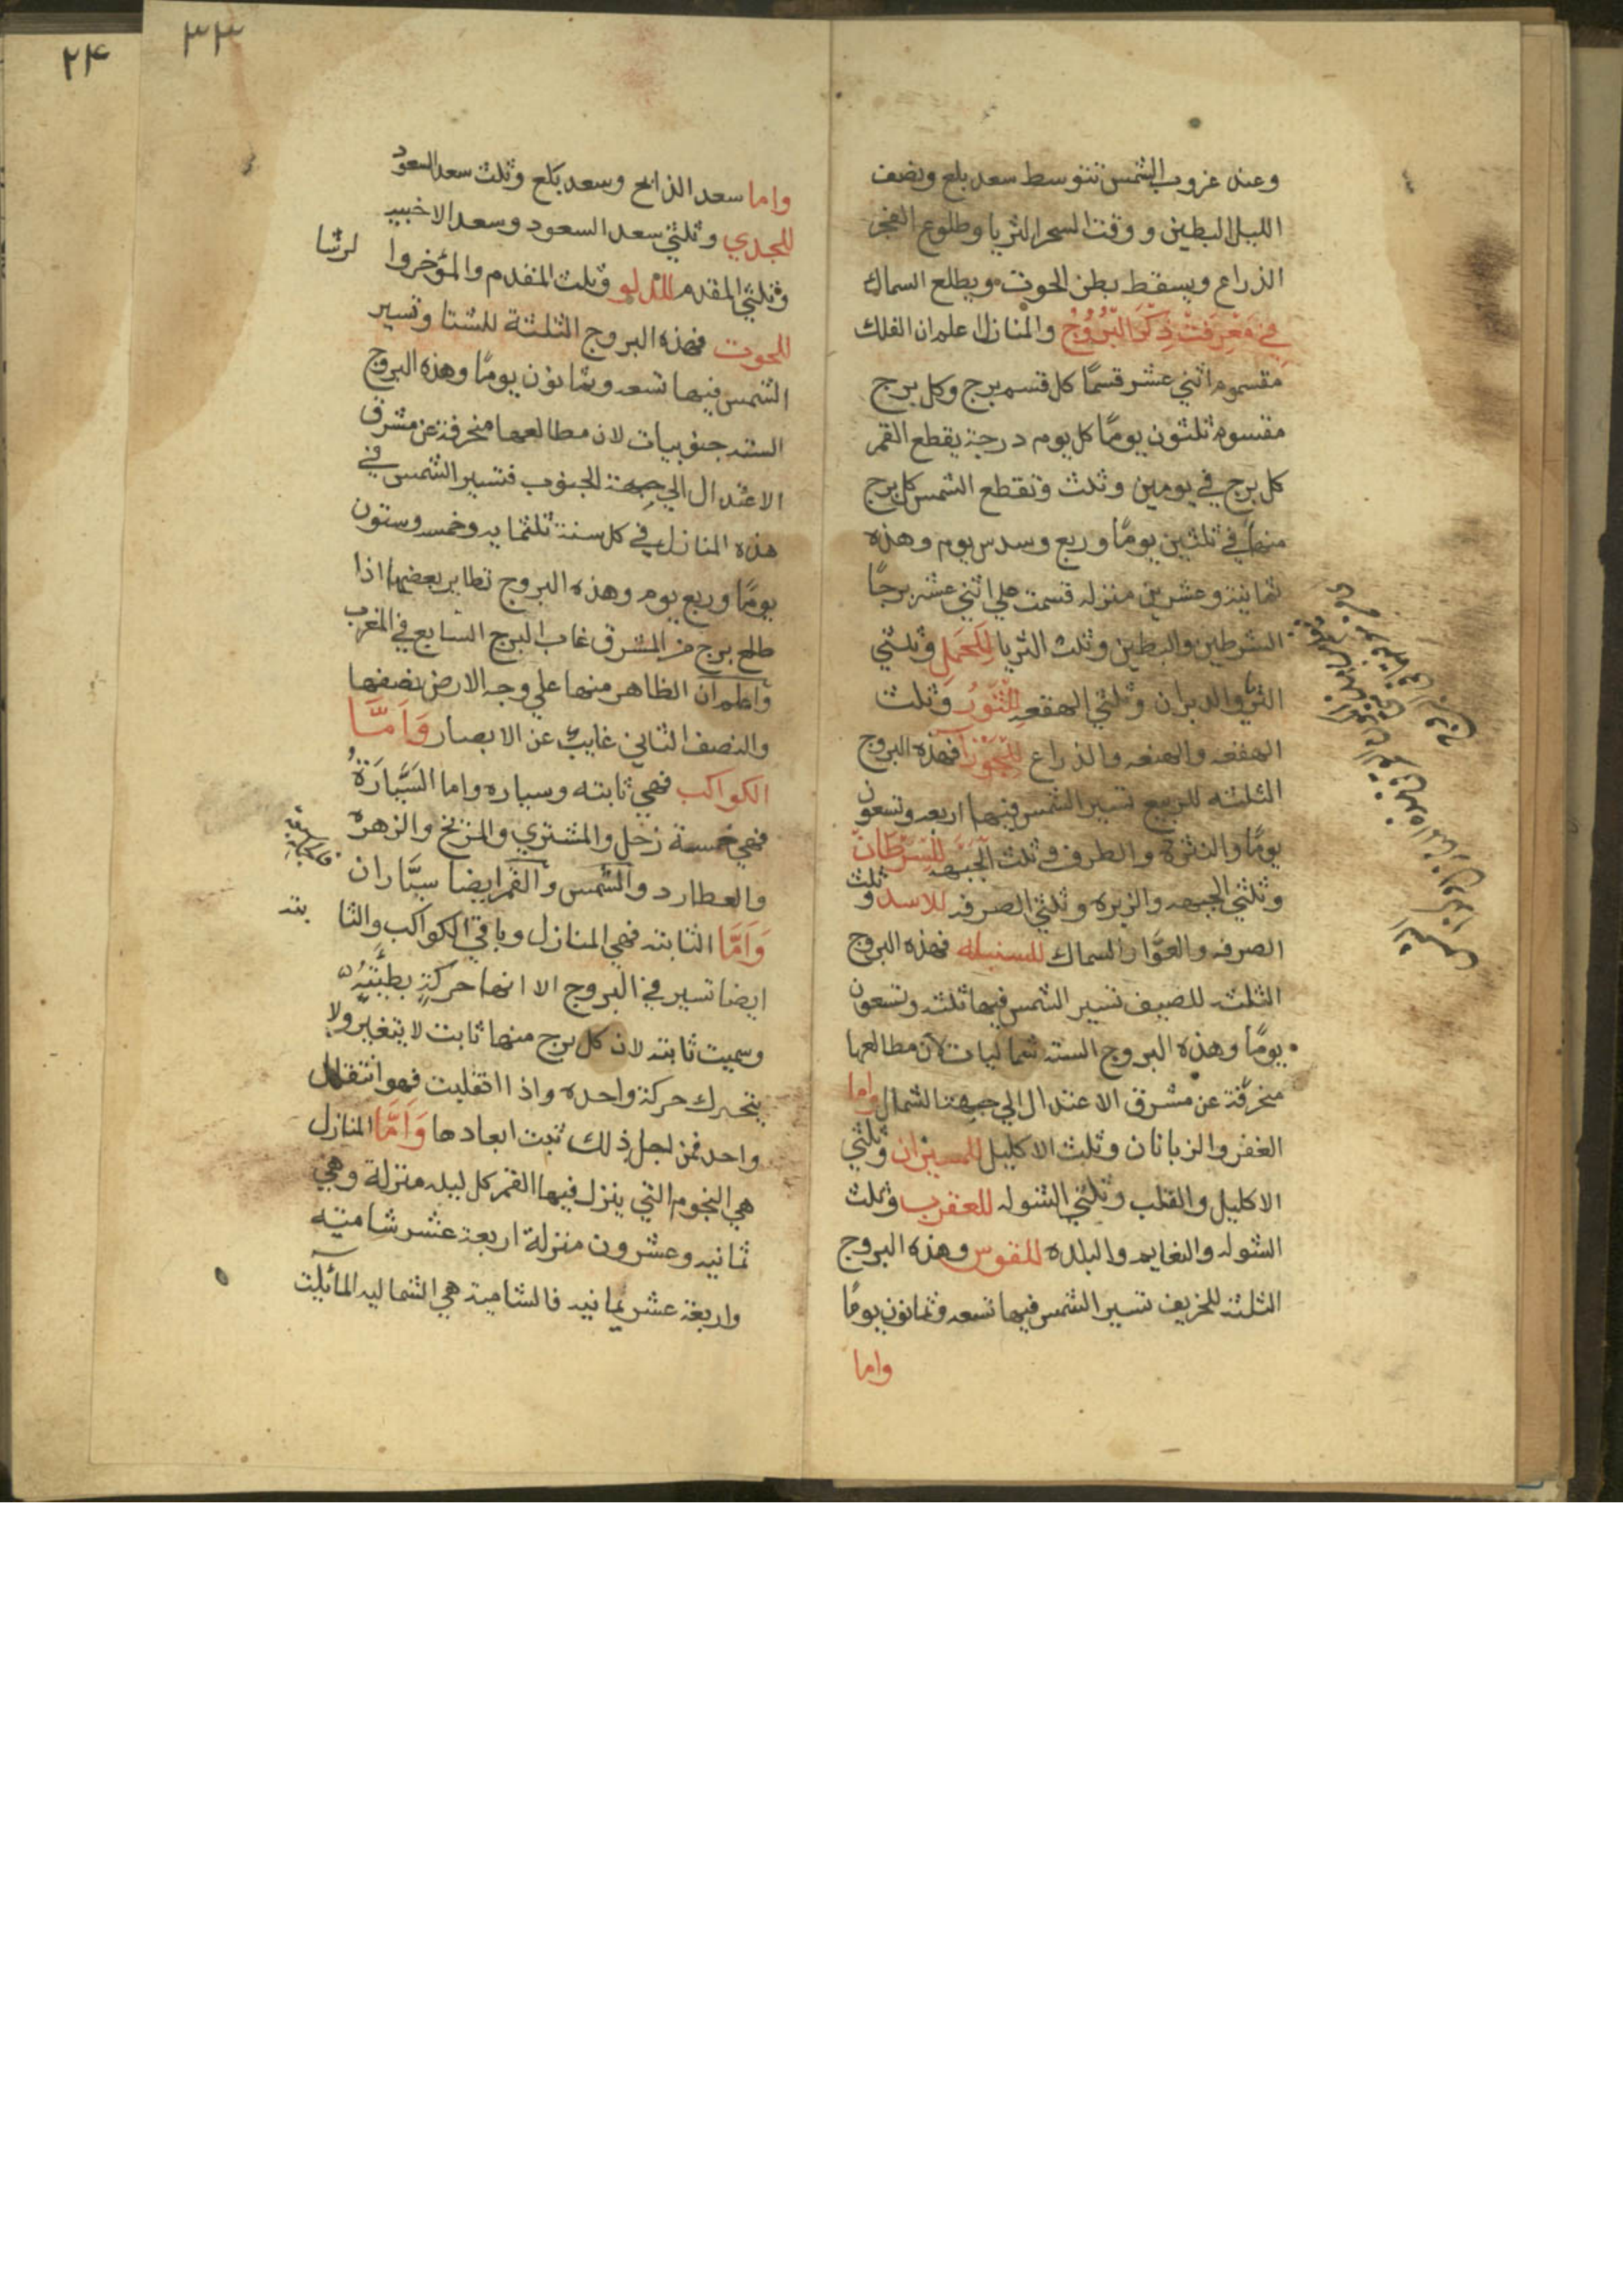 وعند غروب الشمس تتوسط سعد بلع ونصف
الليل البطين ووقت السحر الثريا وطلوع الفجر
الذراع ويسقط بطن الحوت ويطلع السماك
في معرفت ذكر البروج والمنازل اعلم ان الفلك
مقسموم اثني عشر قسمًا كل قسم برج وكل برج
مقسوم ثلثون يومًا كل يوم درجة يقطع القمر
كل برج في يومين وثلث وتقطع الشمس كل برج
منها في ثلثين يومًا وربع وسدس يوم وهذه
ثمانية وعشرين منزله قسمت علي اثني عشر برجًا
الشرطين والبطين وثلث الثريا للحمل وثلثي
الثريا والدبران وثلثي الهقعه للثور وثلث
الهقعه والهنعه والذراع للجوزا فهذه البروج
الثلثه للربيع تسير الشمس فيها اربعه وتسعون
يومًا والنثرة والطرف وثلث الجبهه للسرطان
وثلثي الجبهه والزبره وثلثي الصرفه للاسد وثلث
الصرفه والعوّا والسماك للسنبله فهذه البروج
الثلثه للصيف تسير الشمس فيها ثلثه وتسعون
يومًا وهذه البروج السته شماليات لان مطالعها
منحرفة عن مشرق الاعتدال الي جهة الشمال واما
الغفر والزبانان وثلث الاكليل للميزان وثلثي
الاكليل والقلب وثلثي الشوله للعقرب وثلث
الشوله والنعايم والبلده للقوس وهذه البروج
الثلثه للخريف تسير الشمس فيها تسعه وثمانون يومًا
واما
٣٣
٢٤
واما سعد الذابح وسعد بلع وثلث سعد السعود
للجدي وثلثي سعد السعود وسعد الاخبيه
وثلثي المقدم للدلو وثلث المقدم والمؤخر وا لرشا
للحوت فهذه البروج الثلثة للشتا وتسير
الشمس فيها تسعه وثمانون يومًا وهذه البروج
السته جنوبيات لان مطالعها منحرفة عن مشرق
الاعتدال الي جهة الجنوب فتسير الشمس في
هذه المنازل في كل سنة ثلثمايه وخمسه وستون
يومًا وربع يوم وهذه البروج تطاير بعضها اذا
طلع برج من المشرق غاب البرج السابع في المغرب
واعلم ان الظاهر منها علي وجه الارض نصفها
والنصف الثاني غايب عن الابصار وَاَمَّا
الكواكب فهي ثابته وسياره واما السَّيَّارَةُ
فهي خمسة زحل والمشتري والمريخ والزهره
والعطارد والشمس والقمر ايضا سيّاران
وَاَمَّا الثابته فهي المنازل وباقي الكواكب والثا بته
ايضا تسير في البروج الا انها حركة بطيئة
وسميت ثابته لان كل برج منها ثابت لا يتغير ولا
يتحرك حركة واحده واذا انتقلت فهو انتقال
واحد فمن لجل ذلك ثبت ابعادها وَاَمَّا المنازل
هي النجوم التي ينزل فيها القمر كل ليله منزلة وهي
ثمانيه وعشرون منزلة اربعة عشر شاميه
واربعة عشر يمانيه فالشامية هي الشماليه المائلت